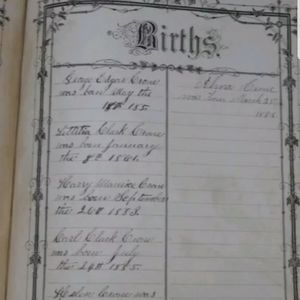 Births.
George Edgar Crone
was born May the
18th 185
Letitia Clark Crone
was born January
the 8th 1861.
Harry Maurice Crone
was born September
the 26th 1883.
Carl Clark Crone
was born July
the 29th 1885.
Helen Crone was
Crone
was born March 25